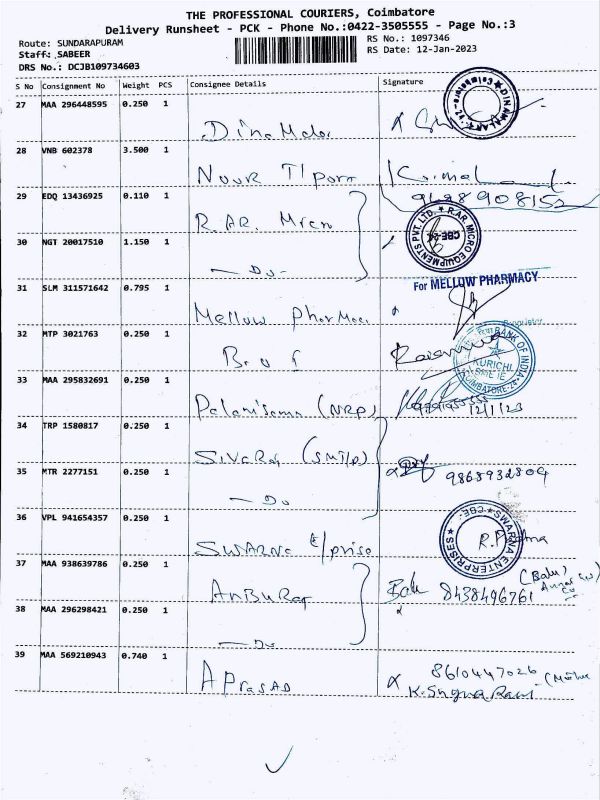 THE PROFESSIONAL COURIERS, Coimbatore
Delivery Runsheet - PCK - Phone No.:0422-3505555 - Page No.:3
Route: SUNDARAPURAM
RS No.: 1097346
Staff: SABEER
RS Date: 12-Jan-2023
DRS No.: DCJB109734603
S No Consignment No Weight PCS Consignee Details Signature
27 MAA 296448595 0.250 1
Dinamalar
DINAMALAR Coimbatore
28 VNB 602378 3.500 1
Noor T
29 EDQ 13436925 0.110 1
R.AR. Micro
R.AR. MICRO EQUIPMENTS PVT. LTD. CBE-24
30 NGT 20017510 1.150 1
Do
31 SLM 311571642 0.795 1
Mellow
For MELLOW PHARMACY
32 MTP 3021763 0.250 1
B.O I
BANK OF INDIA KURICHI COIMBATORE
33 MAA 295832691 0.250 1
Palanisamy (NRP)
12/1/23
34 TRP 1580817 0.250 1
Sivaraj
35 MTR 2277151 0.250 1
Do
9868932804
36 VPL 941654357 0.250 1
SWARNA E/prise
SWARNA ENTERPRISES CBE.
37 MAA 938639786 0.250 1
AnBuRaj
8438496761
(Balu)
38 MAA 296298421 0.250 1
Do
39 MAA 569210943 0.740 1
A Prasad
8610447026